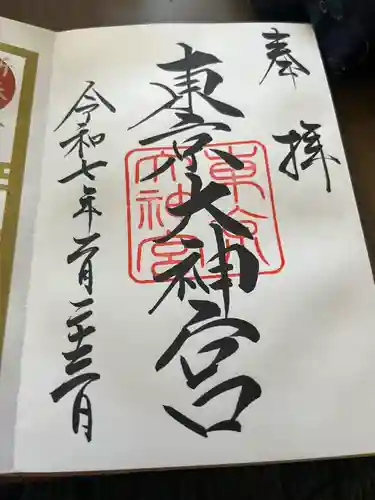 奉拝
東京大神宮
東京大神宮
令和七年二月二十三日